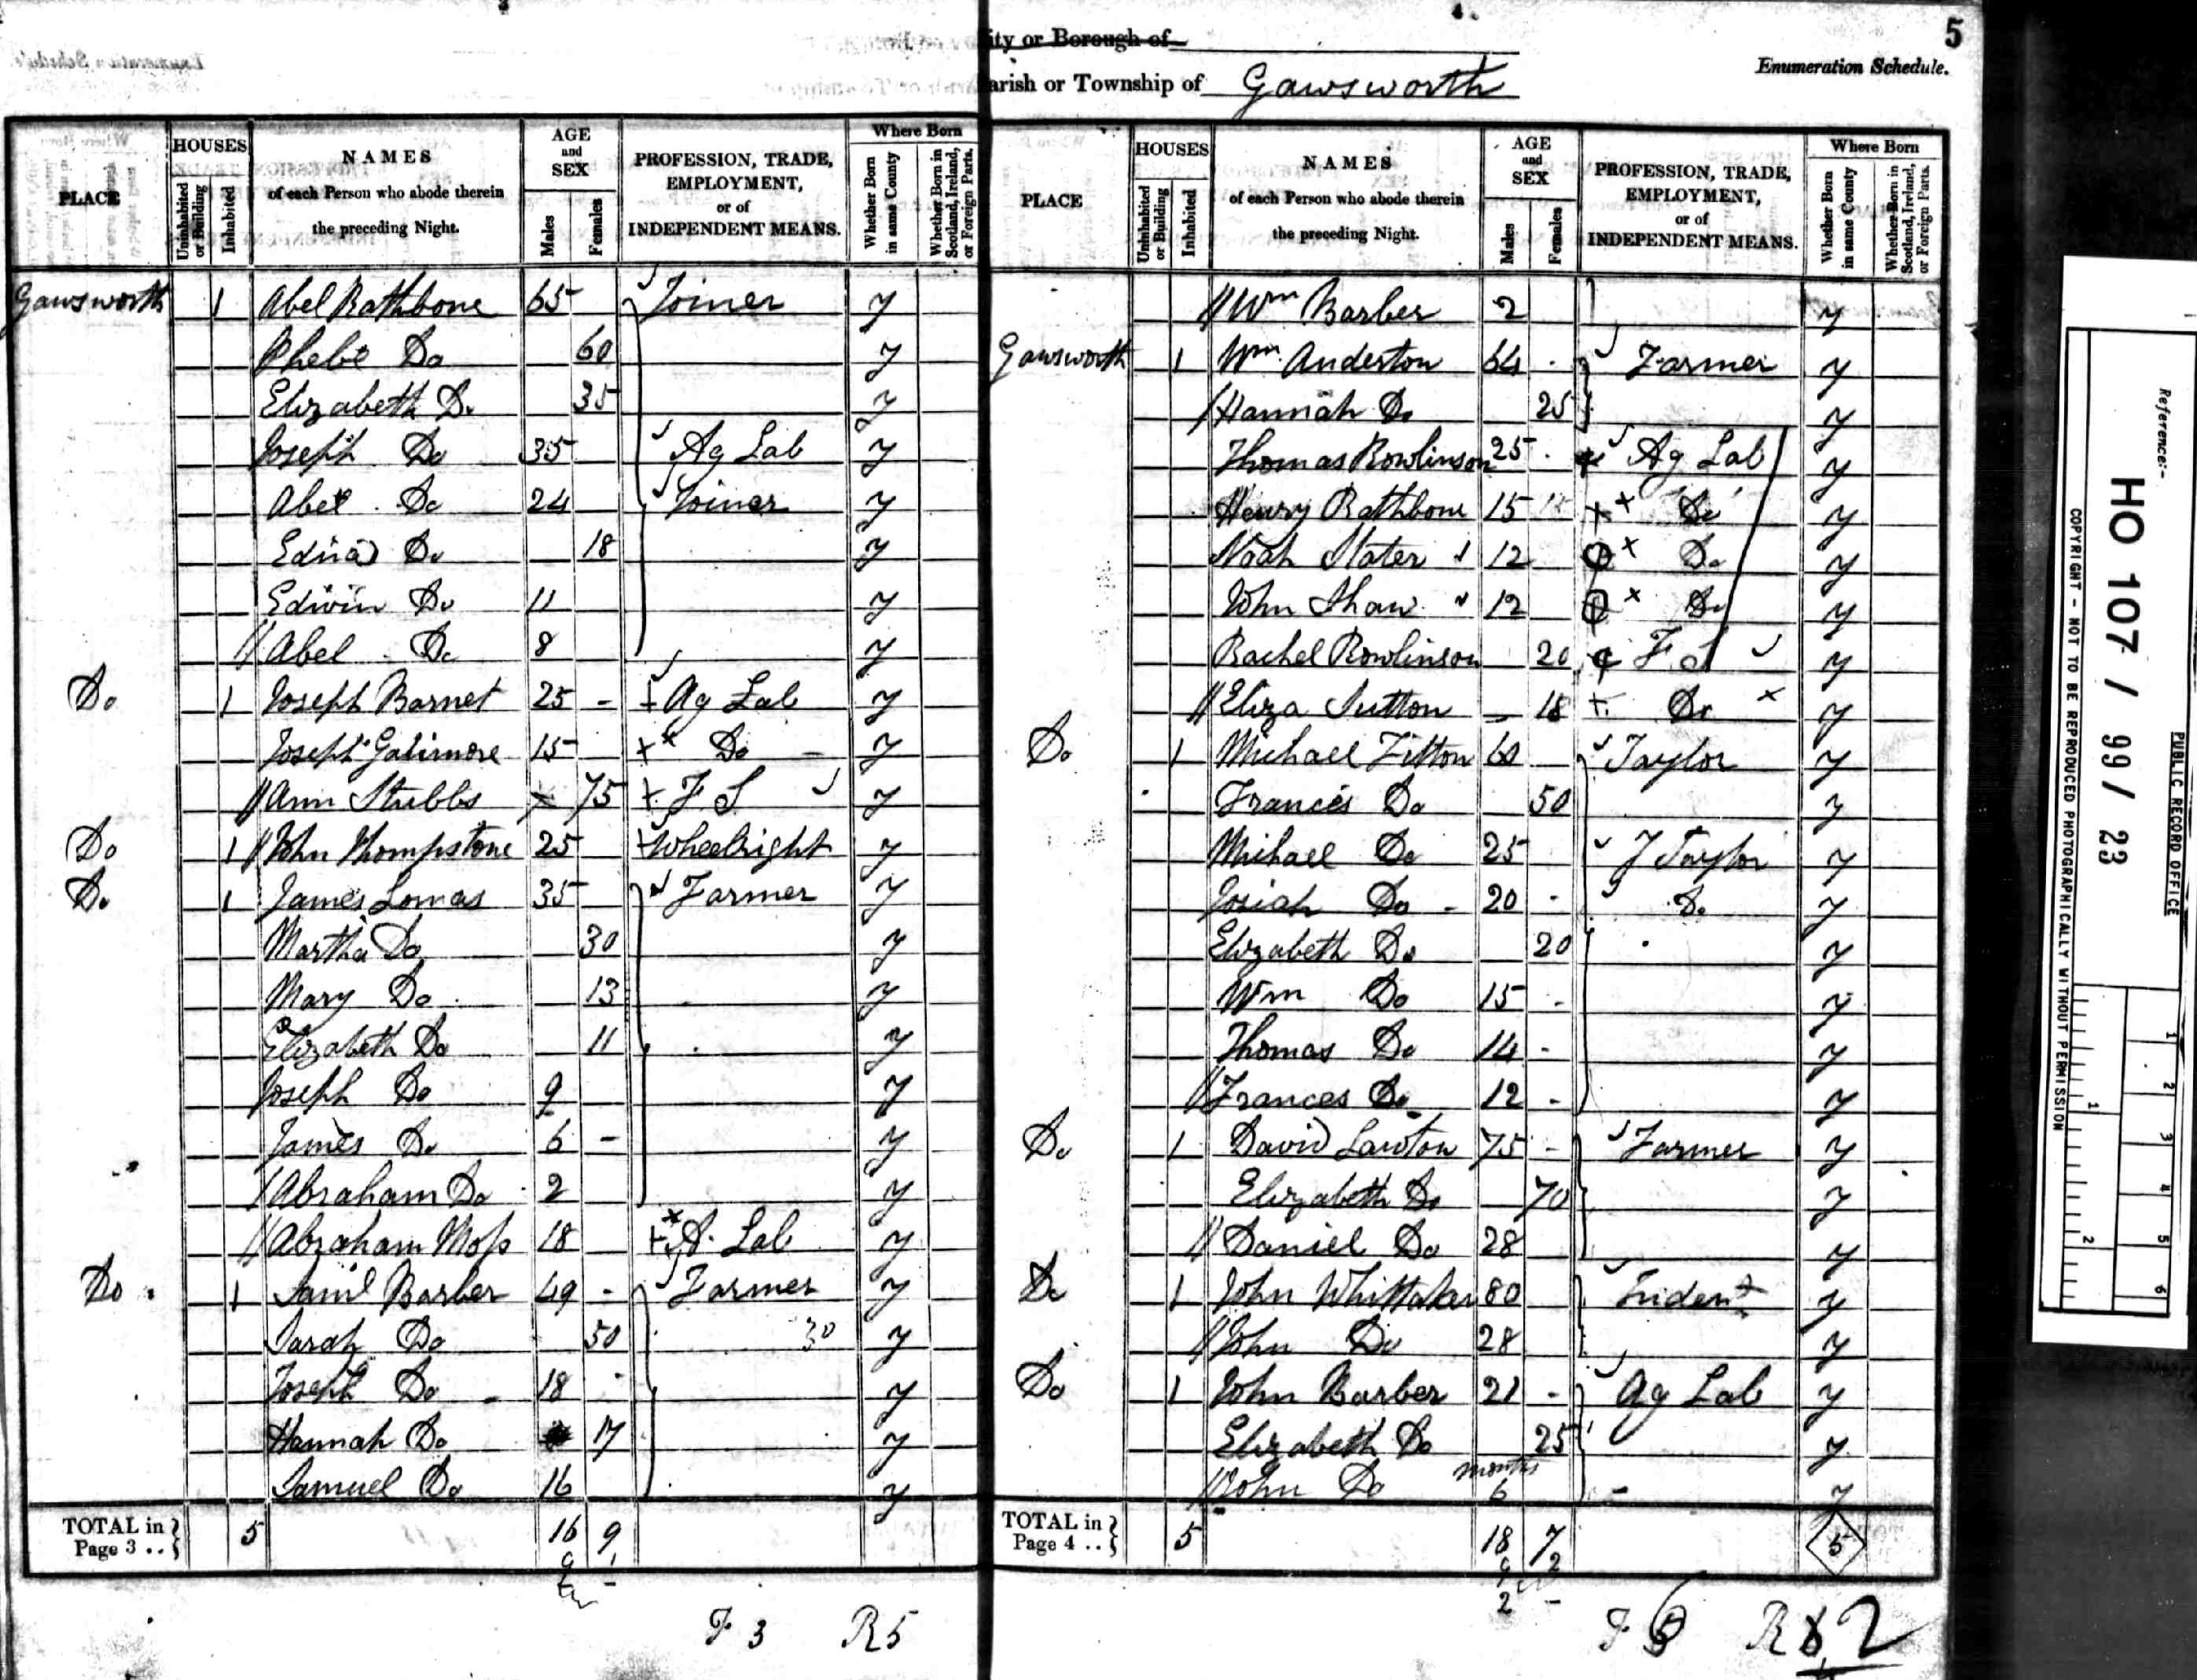 5
City or Borough of
Enumeration Schedule.
Parish or Township of Gawsworth
PLACE
HOUSES
Uninhabited or Building
Inhabited
NAMES
of each Person who abode therein
the preceding Night.
AGE
and
SEX
Males
Females
PROFESSION, TRADE,
EMPLOYMENT,
or of
INDEPENDENT MEANS.
Where Born
Whether Born in same County
Whether Born in Scotland, Ireland, or Foreign Parts.
Gawsworth 1 Abel Rathbone 65 Joiner y
Phebe Do 60 y
Elizabeth Do 35 y
Joseph Do 35 Ag Lab y
Abel Do 24 Joiner y
Edna Do 18 y
Edwin Do 11 y
// Abel Do 8 y
Do 1 Joseph Barnet 25 - + Ag Lab y
Joseph Galimore 15 + x Do y
// Ann Stubbs 75 + F. S y
Do 1 // John Thompstone 25 Wheelright y
Do 1 James Lomas 35 Farmer y
Martha Do 30 y
Mary Do 13 y
Elizabeth Do 11 y
Joseph Do 9 y
James Do 6 - y
/ Abraham Do 2 y
// Abraham Moss 18 + A. Lab y
Do 1 Saml Barber 49 - Farmer y
Sarah Do 50 30 y
Joseph Do 18 y
Hannah Do 17 y
Samuel Do 16 y
TOTAL in Page 3 .. 5 16 9
F 3 R 5
PLACE
HOUSES
Uninhabited or Building
Inhabited
NAMES
of each Person who abode therein
the preceding Night.
AGE
and
SEX
Males
Females
PROFESSION, TRADE,
EMPLOYMENT,
or of
INDEPENDENT MEANS.
Where Born
Whether Born in same County
Whether Born in Scotland, Ireland, or Foreign Parts.
// Wm Barber 2 y
Gawsworth 1 Wm Anderton 64 Farmer y
/ Hannah Do 25 y
Thomas Rowlinson 25 Ag Lab y
Henry Rathbone 15 + x Do y
Noah Slater 12 x Do y
John Shaw 12 x Do y
Rachel Rowlinson 20 F S y
// Eliza Sutton 18 + Do x y
Do 1 Michael Fitton 60 Taylor y
Frances Do 50 y
Michael Do 25 J Taylor y
Josiah Do 20 Do y
Elizabeth Do 20 y
Wm Do 15 y
Thomas Do 14 y
// Frances Do 12 y
Do 1 David Lawton 75 Farmer y
Elizabeth Do 70 y
// Daniel Do 28 y
Do 1 John Whittaker 80 y
// John Do 28 y
Do 1 John Barber 21 Ag Lab y
Elizabeth Do 25 y
// John Do months 6 y
TOTAL in Page 4 .. 5 18 7 5
2
F R 2
Reference:-
HO 107 / 99 / 23
PUBLIC RECORD OFFICE
COPYRIGHT - NOT TO BE REPRODUCED PHOTOGRAPHICALLY WITHOUT PERMISSION
1 2 3 4 5 6
1 2